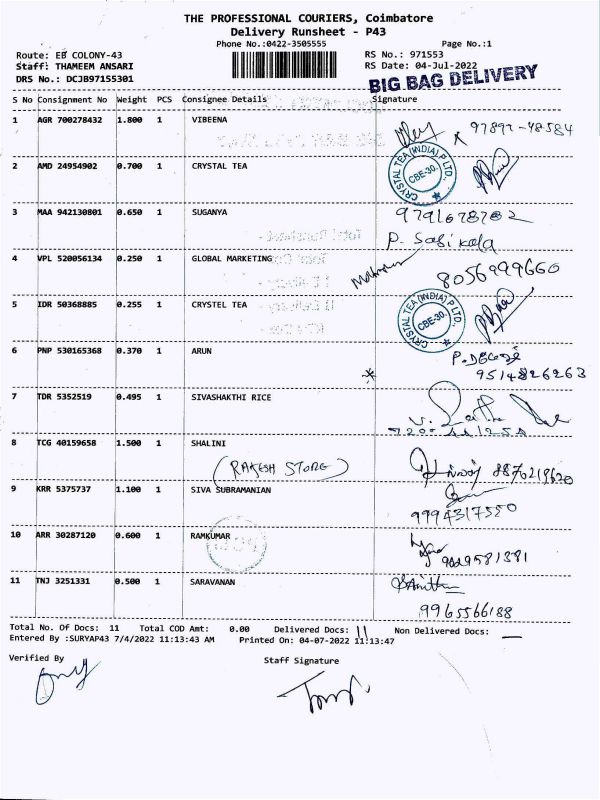 THE PROFESSIONAL COURIERS, Coimbatore
Delivery Runsheet - P43
Phone No.:0422-3505555 Page No.:1
Route: EB COLONY-43 RS No.: 971553
Staff: THAMEEM ANSARI RS Date: 04-Jul-2022
DRS No.: DCJB97155301
BIG BAG DELIVERY
S No Consignment No Weight PCS Consignee Details Signature
1 AGR 700278432 1.800 1 VIBEENA
97897-48584
2 AMD 24954902 0.700 1 CRYSTAL TEA
CRYSTAL TEA (INDIA) P LTD., CBE-30.
3 MAA 942130801 0.650 1 SUGANYA 9791678782
P. Sasikala
4 VPL 520056134 0.250 1 GLOBAL MARKETING
8056999660
5 IDR 50368885 0.255 1 CRYSTEL TEA
CRYSTAL TEA (INDIA) P LTD., CBE-30.
6 PNP 530165368 0.370 1 ARUN
9514826263
7 TDR 5352519 0.495 1 SIVASHAKTHI RICE
8 TCG 40159658 1.500 1 SHALINI
(RAKESH STORE) 8870219620
9 KRR 5375737 1.100 1 SIVA SUBRAMANIAN
9994317550
10 ARR 30287120 0.600 1 RAMKUMAR
11 TNJ 3251331 0.500 1 SARAVANAN
9965566188
Total No. Of Docs: 11 Total COD Amt: 0.00 Delivered Docs: 11 Non Delivered Docs: —
Entered By :SURYAP43 7/4/2022 11:13:43 AM Printed On: 04-07-2022 11:13:47
Verified By Staff Signature